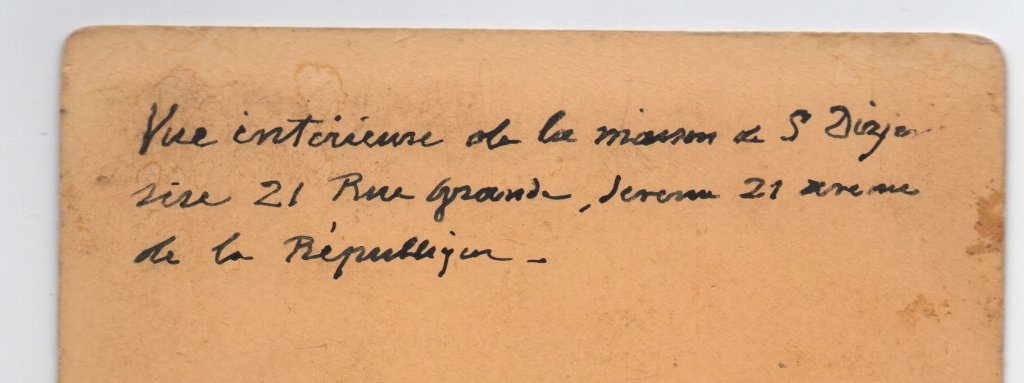 Vue intérieure de la maison de S
sise 21 Rue Grande, devenu 21 avenue
de la République -